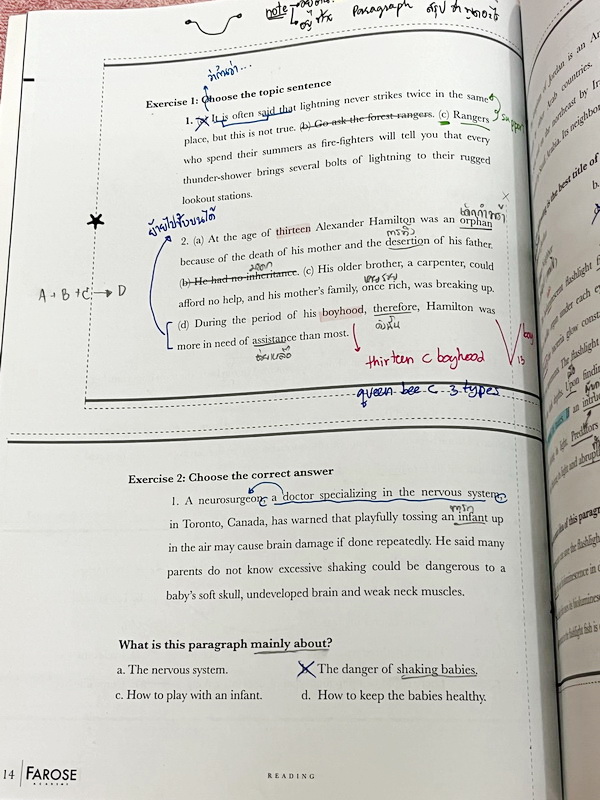 note
Paragraph
ว่ากันว่า...
Exercise 1: Choose the topic sentence
1. (a) It is often said that lightning never strikes twice in the same
place, but this is not true. (b) Go ask the forest rangers. (c) Rangers
support
who spend their summers as fire-fighters will tell you that every
thunder-shower brings several bolts of lightning to their rugged
lookout stations.
ย้ายไปข้างบนได้
เด็กกำพร้า
2. (a) At the age of thirteen Alexander Hamilton was an orphan
because of the death of his mother and the desertion of his father.
มรดก
(b) He had no inheritance. (c) His older brother, a carpenter, could
A + B + C → D
afford no help, and his mother's family, once rich, was breaking up.
(d) During the period of his boyhood, therefore, Hamilton was
ดังนั้น
boy
13
more in need of assistance than most.
ช่วยเหลือ
thirteen c boyhood
queen bee c 3 types
Exercise 2: Choose the correct answer
1. A neurosurgeon, a doctor specializing in the nervous system,
ทารก
in Toronto, Canada, has warned that playfully tossing an infant up
in the air may cause brain damage if done repeatedly. He said many
parents do not know excessive shaking could be dangerous to a
baby's soft skull, undeveloped brain and weak neck muscles.
What is this paragraph mainly about?
a. The nervous system.
b. The danger of shaking babies.
c. How to play with an infant.
d. How to keep the babies healthy.
14 FAROSE
ACADEMY
READING
of Jordan is an
countries.
northeast by
Its neighbor
is the best title of
flashlight
under each
glow
The flashlight
Upon finding
an
light. Predators
light and
of this paragraph
the flashlight
in
bioluminescence
flashlight fish is